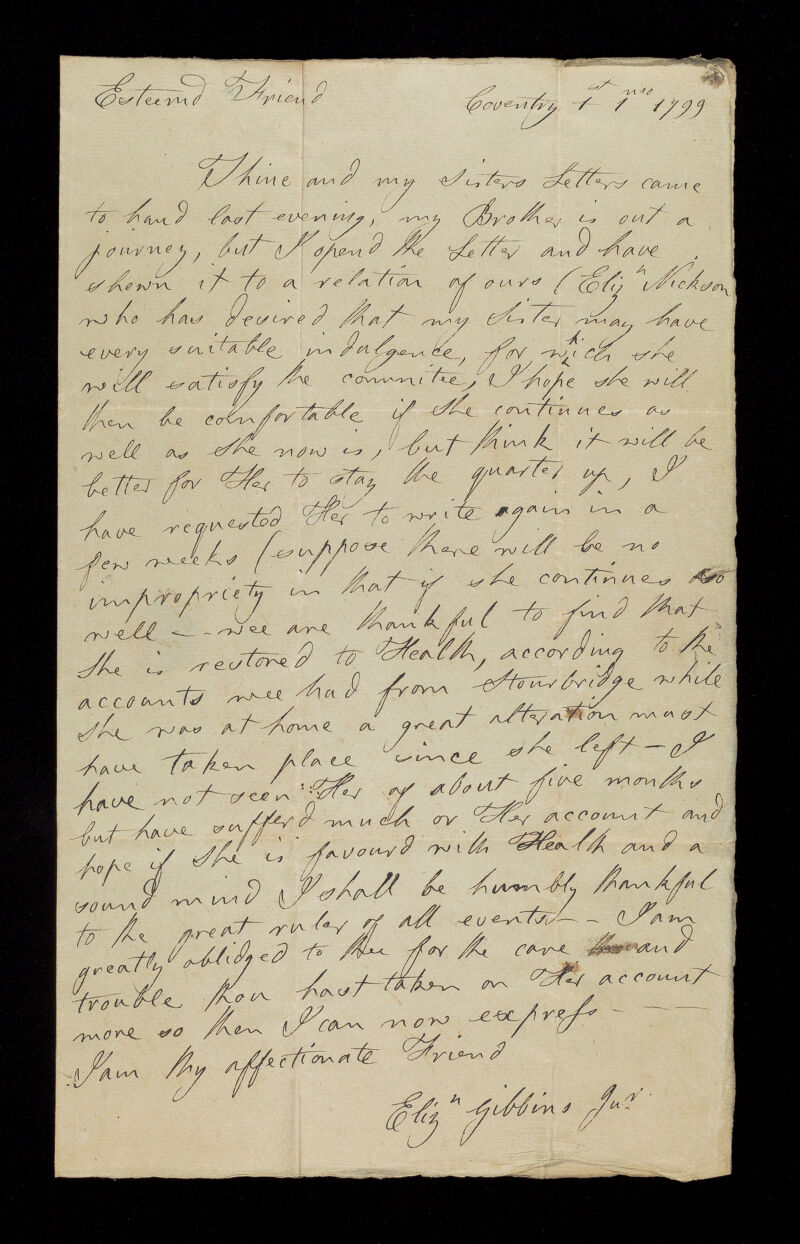 Esteemd Friend Coventry 1st 1mo 1799
Thine and my Sisters Letters came
to hand last evening, my Brother is out a
journey, but I opend the Letter and have
shewn it to a relation of ours (Elizn Nickson
who has desired that my Sister may have
every suitable indulgence, for which she
will satisfy the commitee, I hope she will
then be comfortable if she continues as
well as she now is, but think it will be
better for Her to stay the quarter up, I
have requested Her to write again in a
few weeks (suppose there will be no
impropriety in that if she continues so
well – - wee are thankful to find that
she is restored to Health, according to the
accounts wee had from Stourbridge while
she was at home a great alteration must
have taken place since she left – I
have not seen Her of about five months
but have sufferd much or Her account and
hope if she is favourd with Health and a
sound mind I shall be humbly thankful
to the great ruler of all events – - I am
greatly oblidged to thee for the care and
trouble thou hast taken on Her account
more so then I can now express –
I am thy affectionate Friend
Elizn Gibbins Junr